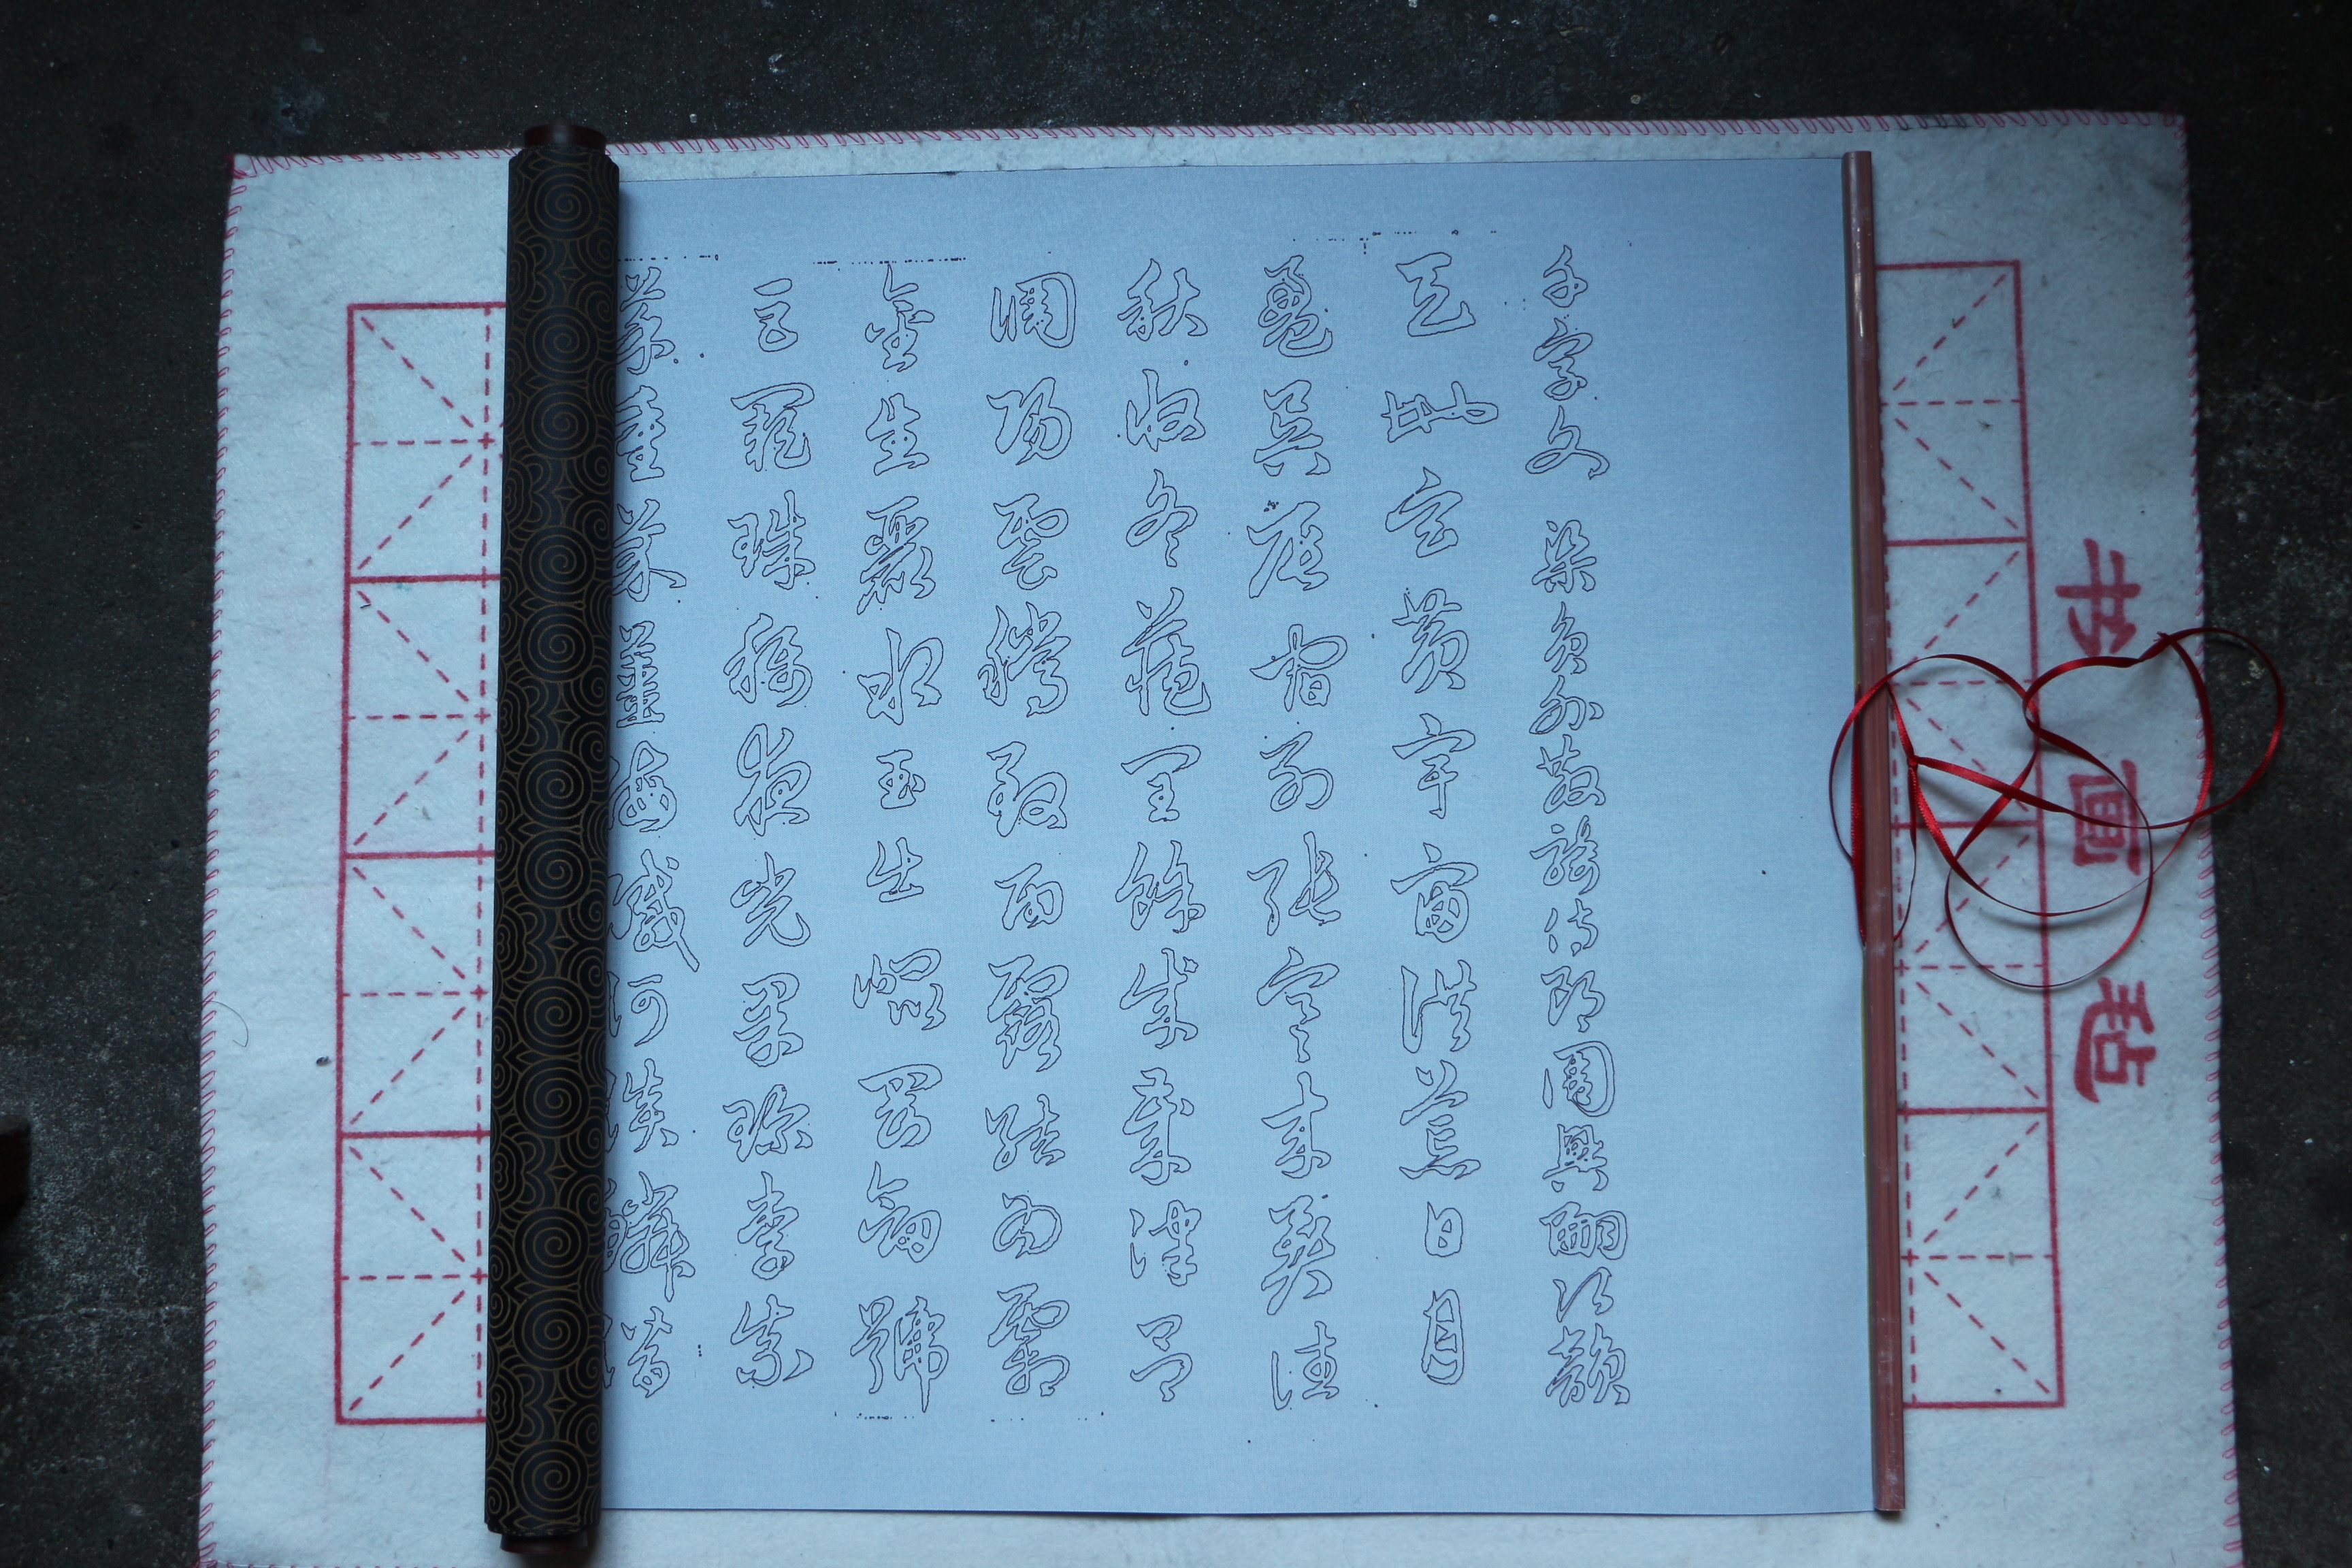 书画毡
千字文 梁員外散騎侍郎周興嗣次韻
天地玄黃宇宙洪荒日月
盈昃辰宿列張寒來暑往
秋收冬藏閏餘成歲律呂
調陽雲騰致雨露結為霜
金生麗水玉出崑岡劍號
巨闕珠稱夜光果珍李柰
菜重芥薑海鹹河淡鱗潛